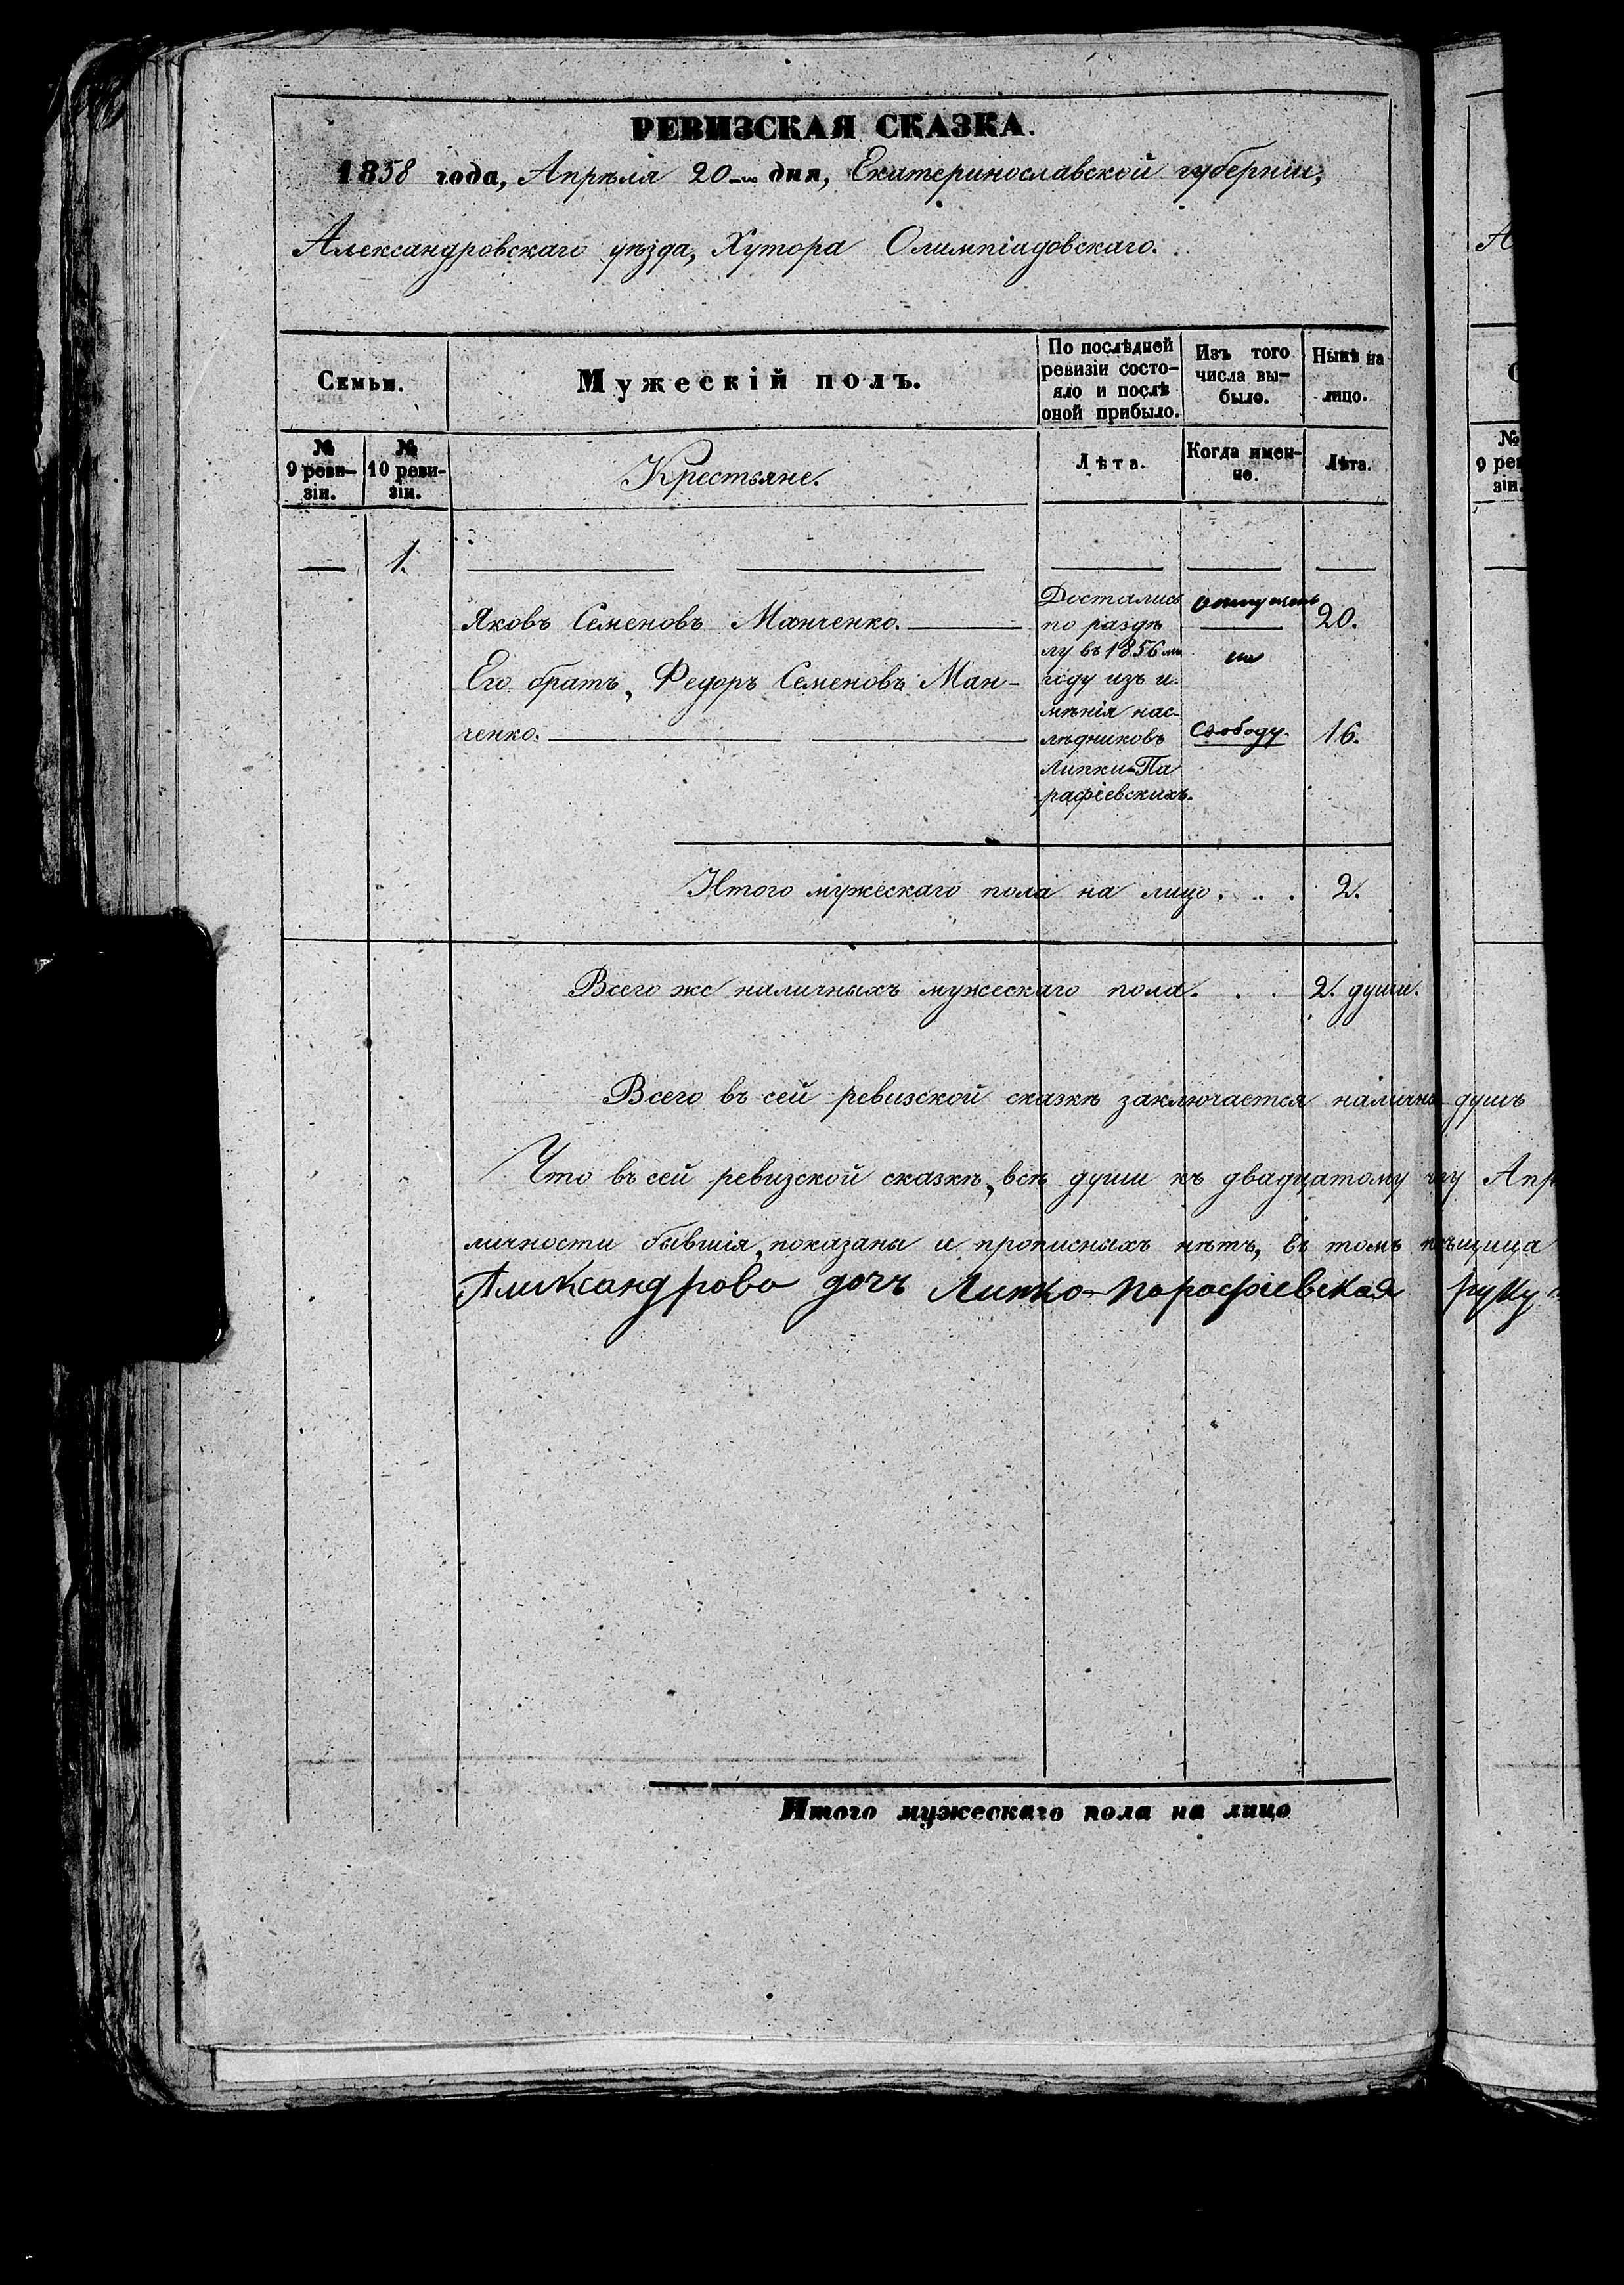 РЕВИЗСКАЯ СКАЗКА.
1858 года, Апрѣля 20-го дня, Екатеринославской губерніи,
Александровскаго уѣзда, Хутора Олимпіадовскаго.
Семьи.
Мужескій полъ.
По послѣдней
ревизіи состо-
яло и послѣ
оной прибыло.
Изъ того
числа вы-
было.
Нынѣ на
лицо.
№
9 реви-
зіи.
№
10 реви-
зіи.
Крестьяне.
Лѣта.
Когда имен-
но.
Лѣта.
1.
Яковъ Семеновъ Манченко.
Его братъ, Федоръ Семеновъ Ман-
ченко.
Достались
по раздѣ
лу въ 1856 мъ
году изъ и-
мѣнія нас-
лѣдниковъ
Липки-Па
рафіевскихъ.
отпущенъ
на
свободу.
20.
16.
Итого мужескаго пола на лицо . . . 2.
Всего же наличныхъ мужескаго пола. . . 2. души.
Всего въ сей ревизской сказкѣ заключается душъ
Что въ сей ревизской сказкѣ, всѣ души къ двадцатому Апр
личности бывшія, показаны и прописныхъ нѣтъ, въ томъ
Александрова дочь Липко-Парафіевская руку
Итого мужескаго пола на лицо
А
№
9 рев
зіи.